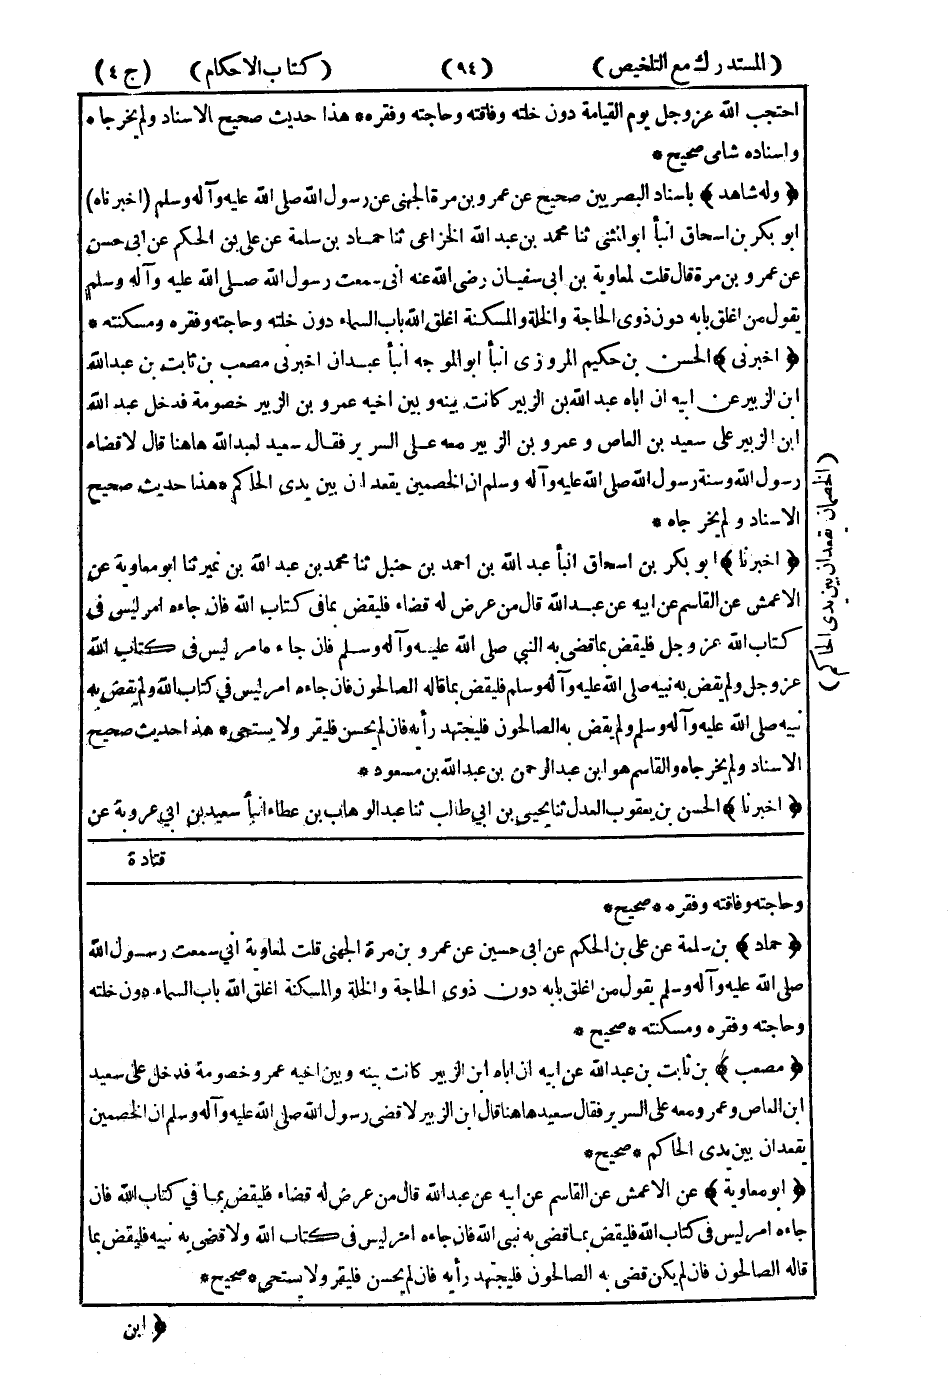 (المستدرك مع التلخيص) (٩٤) (كتاب الاحكام) (ج ٤)
احتجب الله عز وجل يوم القيامة دون خلته وفاقته وحاجته وفقره * هذا حديث صحيح الاسناد ولم يخرجاه *
واسناده شامى صحيح *
﴿ وله شاهد ﴾ باسناد البصريين صحيح عن عمرو بن مرة الجهنى عن رسول الله صلى الله عليه وآله وسلم (اخبرناه)
ابو بكر بن اسحاق انبأ ابو المثنى ثنا محمد بن عبد الله الخزاعى ثنا حماد بن سلمة عن على بن الحكم عن ابى حسن
عن عمرو بن مرة قال قلت لمعاوية بن ابى سفيان رضى الله عنه انى سمعت رسول الله صلى الله عليه وآله وسلم
يقول من اغلق بابه دون ذوى الحاجة والخلة والمسكنة اغلق الله باب السماء دون خلته وحاجته وفقره ومسكنته *
﴿ اخبرنى ﴾ الحسن بن حكيم المروزى انبأ ابو الموجه انبأ عبدان اخبرنى مصعب بن ثابت بن عبد الله
ابن الزبير عن ابيه ان اباه عبد الله بن الزبير كانت بينه وبين اخيه عمرو بن الزبير خصومة فدخل عبد الله
ابن الزبير على سعيد بن العاص وعمرو بن الزبير معه على السرير فقال سعيد لعبد الله هاهنا قال لا قضاء
رسول الله وسنة رسول الله صلى الله عليه وآله وسلم ان الخصمين يقعدان بين يدى الحاكم * هذا حديث صحيح
الاسناد ولم يخرجاه *
(الخصمان يقعدان بين يدى الحاكم)
﴿ اخبرنا ﴾ ابو بكر بن اسحاق انبأ عبد الله بن احمد بن حنبل ثنا محمد بن عبد الله بن نمير ثنا ابو معاوية عن
الاعمش عن القاسم عن ابيه عن عبد الله قال من عرض له قضاء فليقض بما فى كتاب الله فان جاءه امر ليس فى
كتاب الله عز وجل فليقض بما قضى به النبي صلى الله عليه وآله وسلم فان جاءه امر ليس فى كتاب الله
عز وجل ولم يقض به نبيه صلى الله عليه وآله وسلم فليقض بما قاله الصالحون فان جاءه امر ليس في كتاب الله ولم يقض به
نبيه صلى الله عليه وآله وسلم ولم يقض به الصالحون فليجتهد رأيه فان لم يحسن فليقر ولا يستحى * هذا حديث صحيح
الاسناد ولم يخرجاه والقاسم هو ابن عبد الرحمن بن عبد الله بن مسعود *
﴿ اخبرنا ﴾ الحسن بن يعقوب العدل ثنا يحيى بن ابي طالب ثنا عبد الوهاب بن عطاء انبأ سعيد بن ابي عروبة عن
قتادة
وحاجته وفاقته وفقره * صحيح *
﴿ حماد ﴾ بن سلمة عن على بن الحكم عن ابى حسين عن عمرو بن مرة الجهنى قلت لمعاوية اني سمعت رسول الله
صلى الله عليه وآله وسلم يقول من اغلق بابه دون ذوي الحاجة والخلة والمسكنة اغلق الله باب السماء دون خلته
وحاجته وفقره ومسكنته * صحيح *
﴿ مصعب ﴾ بن ثابت بن عبد الله عن ابيه ان اباه ابن الزبير كانت بينه وبين اخيه عمرو خصومة فدخل على سعيد
ابن العاص وعمرو معه على السرير فقال سعيد هاهنا قال ابن الزبير لا قضى رسول الله صلى الله عليه وآله وسلم ان الخصمين
يقعدان بين يدى الحاكم * صحيح *
﴿ ابو معاوية ﴾ عن الاعمش عن القاسم عن ابيه عن عبد الله قال من عرض له قضاء فليقض بما في كتاب الله فان
جاءه امر ليس فى كتاب الله فليقض بما قضى به نبى الله فان جاءه امر ليس فى كتاب الله ولا قضى به نبيه فليقض بما
قاله الصالحون فان لم يكن قضى به الصالحون فليجتهد رأيه فان لم يحسن فليقر ولا يستحى * صحيح *
﴿ ابن